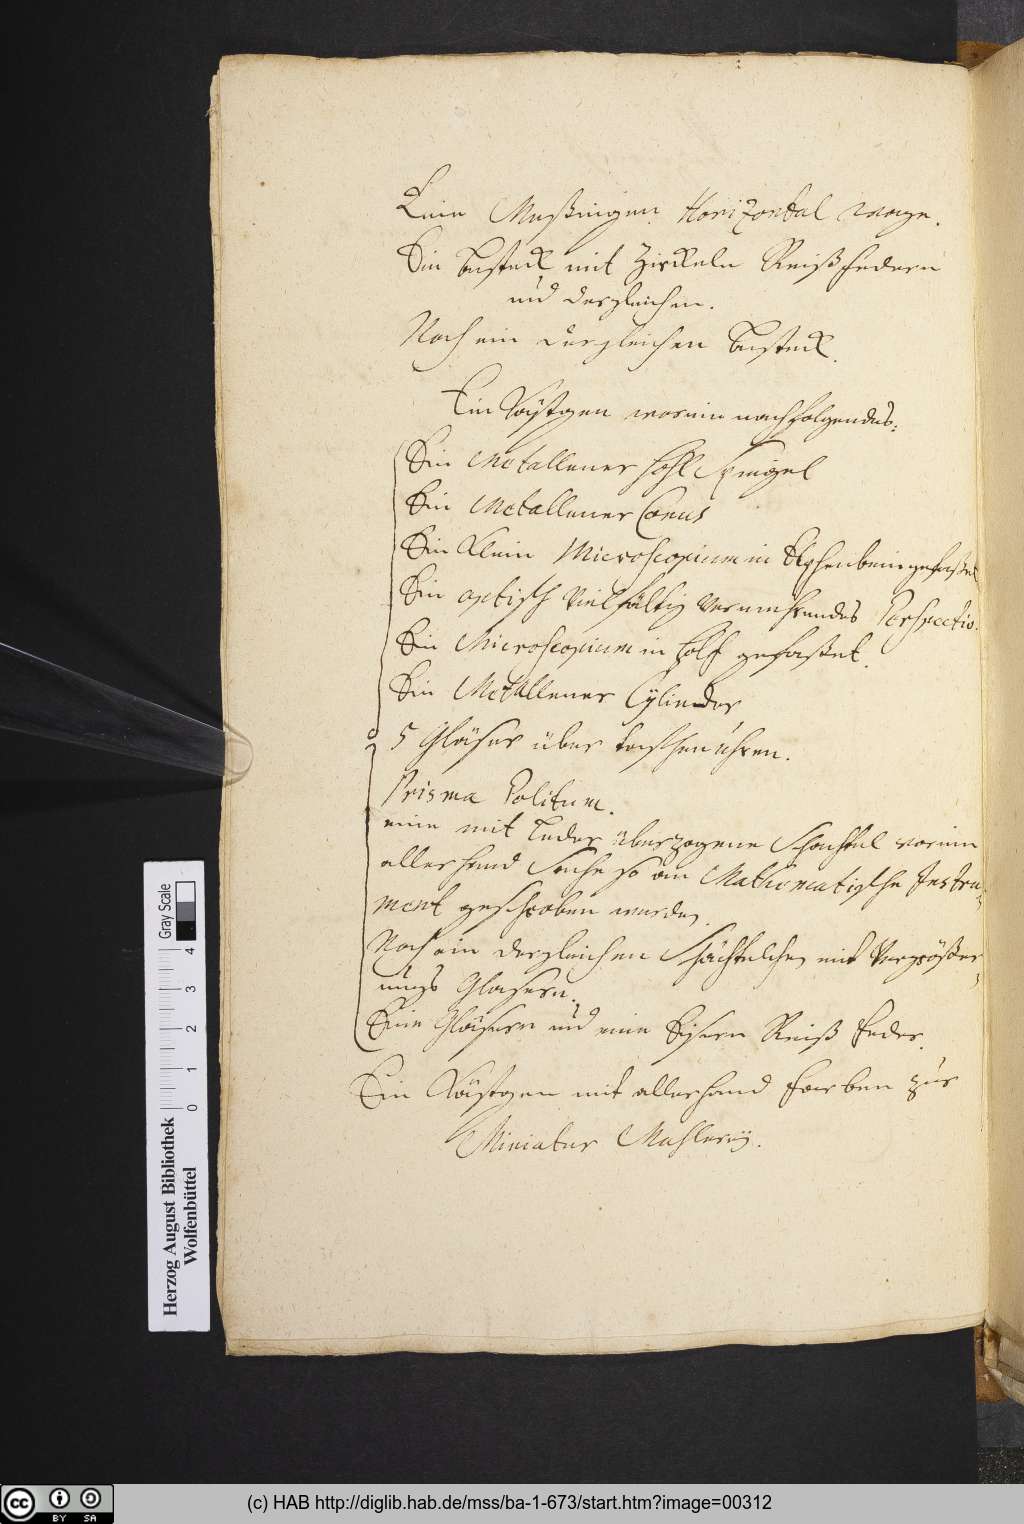 Eine Meßingen Horizontal wage.
Ein besteck mit Zirckeln Reißfedern
und dergleichen.
Noch ein dergleichen besteck.
Ein Kästgen worein nachfolgendes:
Ein Metallener Hohl Spiegel
Ein Metallener Conus
Ein klein Microscopium in Elphenbein gefasset
Ein optisch Vielfältig vermehrendes Perspectiv.
Ein Microscopium in Holtz gefaßet.
Ein Metallener Cylinder
5 Gläser über taschen uhren.
Prisma Politum.
eine mit Leder überzogene Schachtel worinn
allerhand Sache so an Mathematische Instru-
ment geschroben werden
Noch ein dergleichen Schächtelchen mit Vergrößer
ungs Glasern.
Eine Gläsern und eine Eisern Reiß feder.
Ein Kästgen mit allerhand farben zur
Miniatur Mahlerey.
Herzog August Bibliothek
Wolfenbüttel
0 1 2 3 4
Gray Scale
cc BY SA
(c) HAB http://diglib.hab.de/mss/ba-1-673/start.htm?image=00312